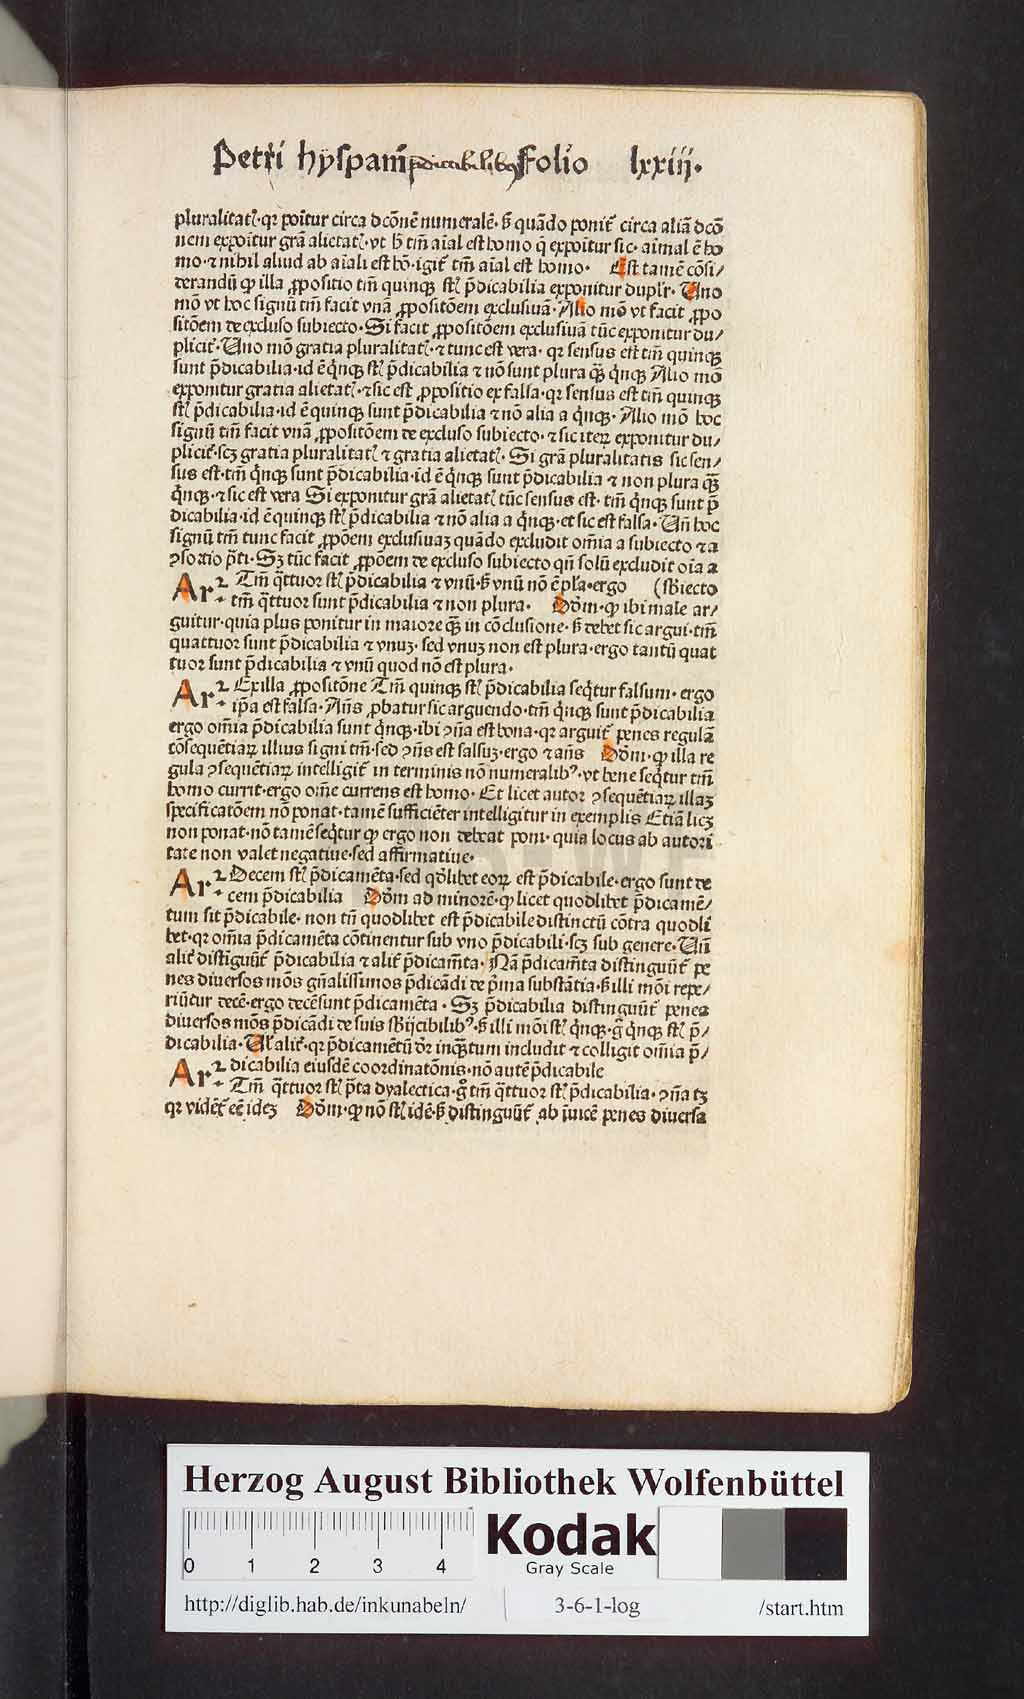 Petri hyspani p̄dicabilibꝰ Folio lxxiij.
pluralitatꝭ·qꝛ poĩtur circa dcõnẽ numeralẽ· s̃ quãdo ponit᷑ circa aliã dcõ
nem expoĩtur grã alietatꝭ·vt h̃ tm̃ aĩal est homo q̃ expoĩtur sic· aĩmal ẽ ho
mo·⁊ nihil aliud ab aĩali est hõ·igit᷑ tm̃ aĩal est homo· Est tamẽ cõsi/
derandũ ꝙ illa ꝓpositio tm̃ quinqꝫ st̃ p̃dicabilia exponitur dupl̃r· Uno
mõ vt hoc signũ tm̃ facit vnã ꝓpositõem exclusiuã· Alio mõ vt facit ꝓpo
sitõem de excluso subiecto· Si facit ꝓpositõem exclusiuã tũc exponitur du/
plicit᷑· Uno mõ gratia pluralitatꝭ·⁊ tunc est vera· qꝛ sensus est tm̃ quinqꝫ
sunt p̃dicabilia·id ẽ q̃nqꝫ st̃ p̃dicabilia ⁊ nõ sunt plura qꝫ̃ q̃nqꝫ Alio mõ
exponitur gratia alietatꝭ·⁊ sic est ꝓpositio ex falsa·qꝛ sensus est tm̃ quinqꝫ
st̃ p̃dicabilia·id ẽ quinqꝫ sunt p̃dicabilia ⁊ nõ alia a q̃nqꝫ· Alio mõ hoc
signũ tm̃ facit vnã ꝓpositõem de excluso subiecto·⁊ sic iteꝝ exponitur du/
plicit᷑·scꝫ gratia pluralitatꝭ ⁊ gratia alietatꝭ· Si grã pluralitatis sic sen/
sus est·tm̃ q̃nqꝫ sunt p̃dicabilia·id ẽ q̃nqꝫ sunt p̃dicabilia ⁊ non plura qꝫ̃
q̃nqꝫ·⁊ sic est vera Si exponitur grã alietatꝭ tũc sensus est· tm̃ q̃nqꝫ sunt p̃
dicabilia·id ẽ quinqꝫ st̃ p̃dicabilia ⁊ nõ alia a q̃nqꝫ·et sic est falsa· Uñ hoc
signũ tm̃ tunc facit ꝓpõem exclusiuaꝫ quãdo excludit om̃ia a subiecto ⁊ a
ꝯsortio p̃ti· Sꝫ tũc facit ꝓpõem de excluso subiecto qñ solũ excludit oĩa a
Arꝛ· Tm̃ q̃ttuor st̃ p̃dicabilia ⁊ vnũ·s̃ vnũ nõ ẽ pl̃a·ergo (sb̃iecto
tm̃ q̃ttuor sunt p̃dicabilia ⁊ non plura· Dõm·ꝙ ibi male ar/
guitur·quia plus ponitur in maiore qꝫ̃ in cõclusione· s̃ debet sic argui·tm̃
quattuor sunt p̃dicabilia ⁊ vnuꝫ· sed vnuꝫ non est plura·ergo tantũ quat
tuor sunt p̃dicabilia ⁊ vnũ quod nõ est plura·
Arꝛ· Ex illa ꝓpositõne Tm̃ quinqꝫ st̃ p̃dicabilia seq̃tur falsum· ergo
ip̃a est falsa· Añs ꝓbatur sic arguendo·tm̃ q̃nqꝫ sunt p̃dicabilia
ergo om̃ia p̃dicabilia sunt q̃nqꝫ·ibi ꝯña est bona·qꝛ arguit᷑ penes regulã
cõsequẽtiaꝝ illius signi tm̃·sed ꝯñs est falsuꝫ·ergo ⁊ añs Dõm·ꝙ illa re
gula ꝯsequẽtiaꝝ intelligit᷑ in terminis nõ numeralibꝰ·vt bene seq̃tur tm̃
homo currit·ergo om̃e currens est homo· Et licet autor ꝯsequẽtiaꝝ illaꝫ
specificatõem nõ ponat·tamẽ sufficiẽter intelligitur in exemplis Etiã licꝫ
non ponat·nõ tamẽ seq̃tur ꝙ ergo non debeat poni· quia locus ab autori
tate non valet negatiue·sed affirmatiue·
Arꝛ· Decem st̃ p̃dicamẽta·sed qd̃libet eoꝝ est p̃dicabile·ergo sunt de
cem p̃dicabilia Dõm ad minorẽ·ꝙ licet quodlibet p̃dicamẽ/
tum sit p̃dicabile· non tñ quodlibet est p̃dicabile distinctũ cõtra quodli
bet·qꝛ om̃ia p̃dicamẽta cõtinentur sub vno p̃dicabili·scꝫ sub genere· Uñ
alit᷑ distĩguũt᷑ p̃dicabilia ⁊ alit᷑ p̃dicam̃ta· Nã p̃dicam̃ta distinguũt᷑ pe
nes diuersos mõs gñalissimos p̃dicãdi de p̃ma substãtia·s̃ illi mõi repe/
riũtur decẽ·ergo decẽ sunt p̃dicamẽta· Sꝫ p̃dicabilia distinguũt᷑ penes
diuersos mõs p̃dicãdi de suis sb̃ijcibilibꝰ·s̃ illi mõi st̃ q̃nqꝫ·g̃ q̃nqꝫ st̃ p̃/
dicabilia· Ul̃ alit᷑·qꝛ p̃dicamẽtũ dr̃ inqꝫ̃tum includit ⁊ colligit om̃ia p̃/
dicabilia eiusdẽ coordinatõnis·nõ autẽ p̃dicabile
Arꝛ· Tm̃ q̃ttuor st̃ p̃ta dyalectica·g̃ tm̃ q̃ttuor st̃ p̃dicabilia·ꝯña tꝫ
qꝛ vidẽt᷑ eẽ ideꝫ Dõm·ꝙ nõ st̃ idẽ·s̃ distinguũt᷑ ab ĩuicẽ penes diuersa
Herzog August Bibliothek Wolfenbüttel
0 1 2 3 4
Kodak
Gray Scale
http://diglib.hab.de/inkunabeln/ 3-6-1-log /start.htm